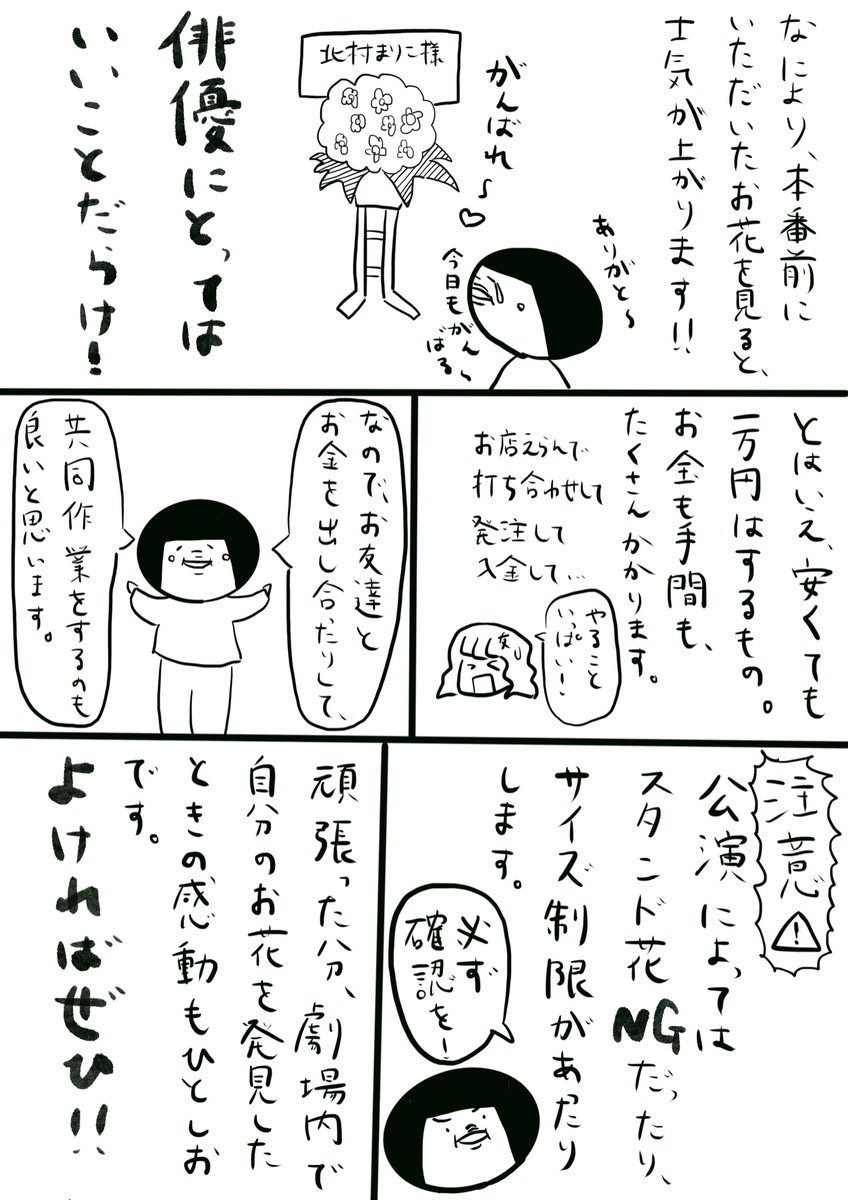 なにより、本番前に
いただいたお花を見ると、
士気が上がります!!
がんばれ〜♡
北村まりこ様
ありがと〜
今日もがん
ばる〜
俳優にとっては
いいことだらけ!
とはいえ、安くても
一万円はするもの。
お金も手間も、
たくさんかかります。
お店えらんで
打ち合わせして
発注して
入金して…
やること
いっぱい!
友
なので、お友達と
お金を出し合ったりして、
共同作業をするのも
良いと思います。
注意
公演によっては
スタンド花NGだったり、
サイズ制限があったり
します。
必ず
確認を!
頑張った分、劇場内で
自分のお花を発見した
ときの感動もひとしお
です。
よければぜひ!!